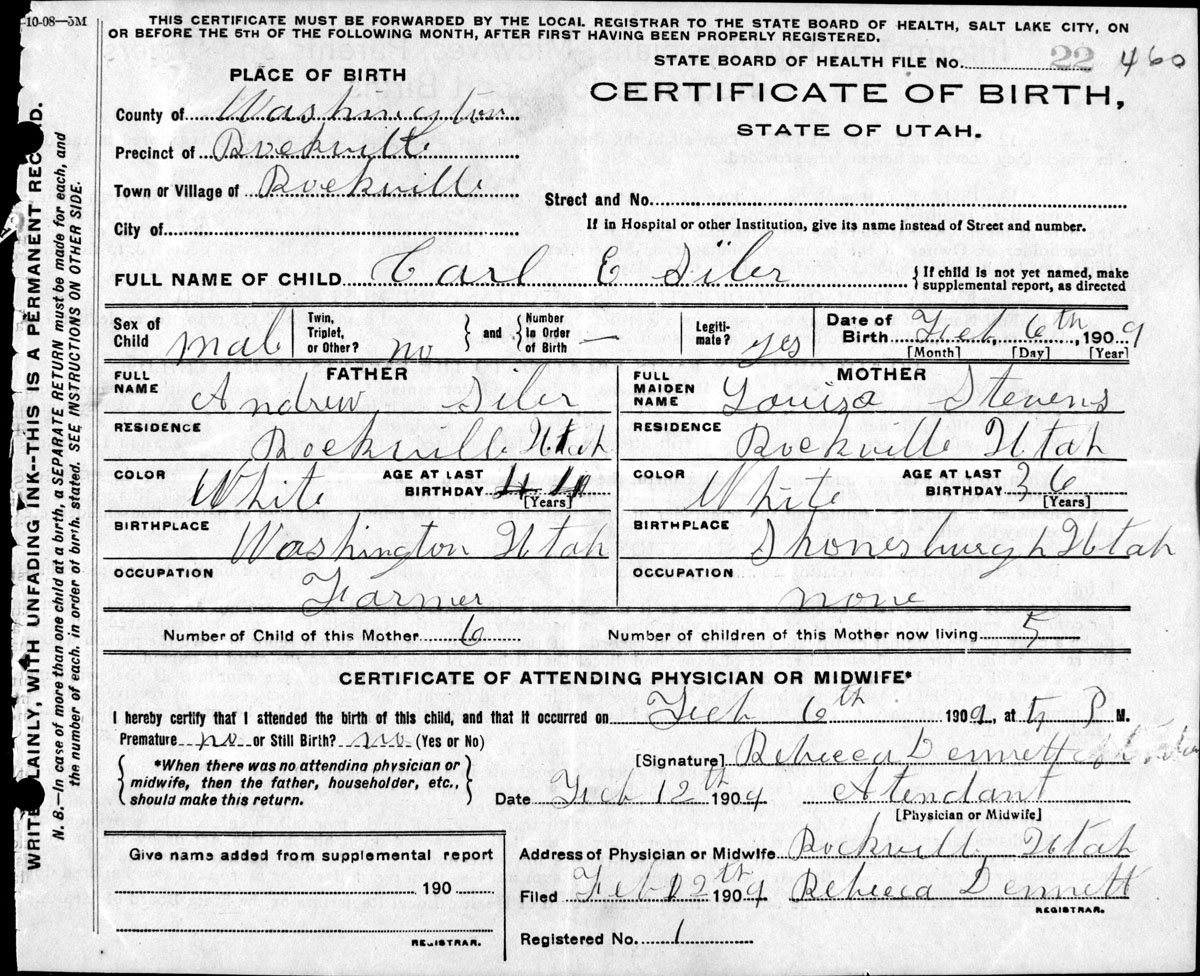 -10-08—5M
THIS CERTIFICATE MUST BE FORWARDED BY THE LOCAL REGISTRAR TO THE STATE BOARD OF HEALTH, SALT LAKE CITY, ON
OR BEFORE THE 5TH OF THE FOLLOWING MONTH, AFTER FIRST HAVING BEEN PROPERLY REGISTERED.
STATE BOARD OF HEALTH FILE No. 22 460
PLACE OF BIRTH
CERTIFICATE OF BIRTH,
STATE OF UTAH.
County of Washington
Precinct of Rockville
Town or Village of Rockville
Street and No.
City of
If in Hospital or other Institution, give its name instead of Street and number.
FULL NAME OF CHILD Carl E Siler
{If child is not yet named, make
supplemental report, as directed
Sex of Child male
Twin, Triplet, or Other? no
and
Number in Order of Birth —
Legiti-mate? yes
Date of Birth Feb 6th, 1909
[Month] [Day] [Year]
FATHER
FULL NAME Andrew Siler
RESIDENCE Rockville Utah
COLOR White
AGE AT LAST BIRTHDAY
[Years]
BIRTHPLACE Washington Utah
OCCUPATION Farmer
MOTHER
FULL MAIDEN NAME Louiza Stevens
RESIDENCE Rockville Utah
COLOR White
AGE AT LAST BIRTHDAY 36
[Years]
BIRTHPLACE Shonesburgh Utah
OCCUPATION none
Number of Child of this Mother 6
Number of children of this Mother now living 5
CERTIFICATE OF ATTENDING PHYSICIAN OR MIDWIFE*
I hereby certify that I attended the birth of this child, and that it occurred on Feb 6th 1909, at 5 P M.
Premature no or Still Birth? no (Yes or No)
{*When there was no attending physician or
midwife, then the father, householder, etc.,
should make this return.}
[Signature] Rebecca Dennett
Date Feb 12th 1909
Atendant
[Physician or Midwife]
Address of Physician or Midwife Rockville Utah
Filed Feb 12th 1909 Rebecca Dennett
REGISTRAR.
Registered No. 1
Give name added from supplemental report
190
REGISTRAR.
WRITE PLAINLY, WITH UNFADING INK--THIS IS A PERMANENT RECORD.
N. B.—In case of more than one child at a birth, a SEPARATE RETURN must be made for each, and
the number of each, in order of birth, stated. SEE INSTRUCTIONS ON OTHER SIDE.